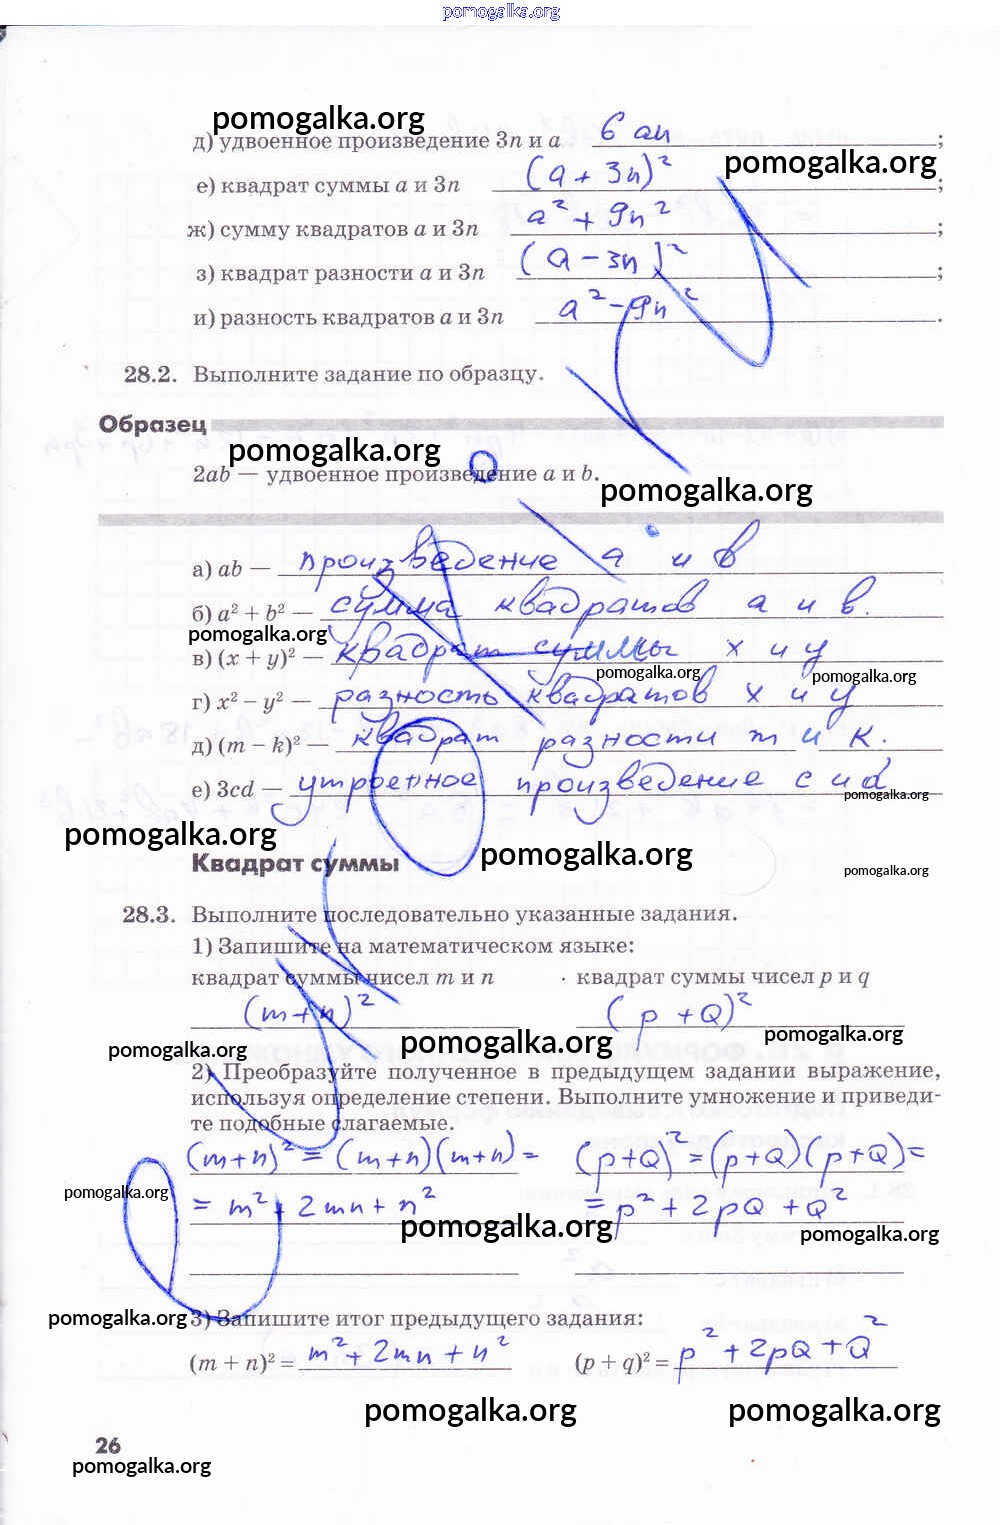 pomogalka.org
pomogalka.org
д) удвоенное произведение 3n и a 6 an ;
pomogalka.org
е) квадрат суммы a и 3n (a + 3n)² ;
ж) сумму квадратов a и 3n a² + 9n² ;
з) квадрат разности a и 3n (a − 3n)² ;
и) разность квадратов a и 3n a² − 9n² .
28.2. Выполните задание по образцу.
Образец
pomogalka.org
2ab — удвоенное произведение a и b.
pomogalka.org
а) ab — произведение a и b
б) a² + b² — сумма квадратов a и b.
pomogalka.org
в) (x + y)² — квадрат суммы x и y
pomogalka.org pomogalka.org
г) x² − y² — разность квадратов x и y
д) (m − k)² — квадрат разности m и k.
е) 3cd — утроенное произведение c и d
pomogalka.org
pomogalka.org
Квадрат суммы
pomogalka.org
pomogalka.org
28.3. Выполните последовательно указанные задания.
1) Запишите на математическом языке:
квадрат суммы чисел m и n квадрат суммы чисел p и q
(m+n)² (p+Q)²
pomogalka.org pomogalka.org pomogalka.org
2) Преобразуйте полученное в предыдущем задании выражение,
используя определение степени. Выполните умножение и приведи-
те подобные слагаемые.
(m+n)² = (m+n)(m+n) = (p+Q)² = (p+Q)(p+Q) =
pomogalka.org
= m² + 2mn + n² = p² + 2pQ + Q²
pomogalka.org pomogalka.org
pomogalka.org
3) Запишите итог предыдущего задания:
(m + n)² = m² + 2mn + n² (p + q)² = p² + 2pQ + Q²
pomogalka.org pomogalka.org
26
pomogalka.org